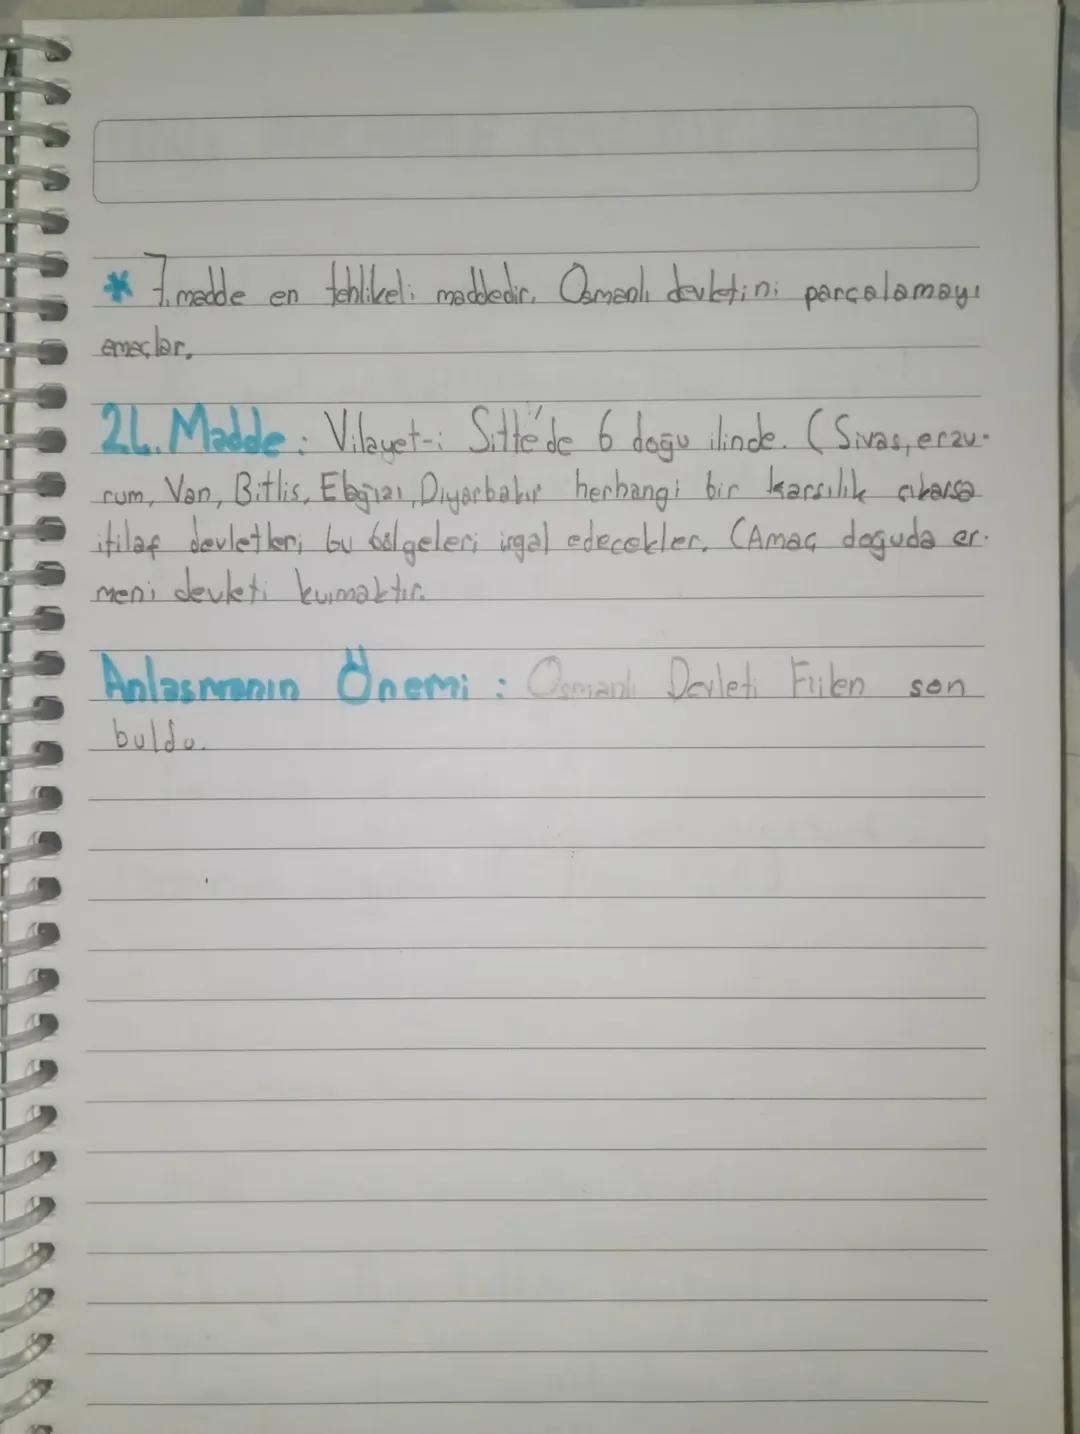 * 7. madde en tehlikeli maddedir. Osmanlı devletini parçalamayı
emaçlar.
24. Madde: Vilayet-i Sitte'de 6 doğu ilinde. (Sivas, erzu-
rum, Van, Bitlis, Elağızı, Diyarbakır herhangi bir karsılık cıkarsa
itilaf devletleri bu bölgeleri işgal edecekler. (Amaç doguda er-
meni devleti kurmaktır.
Anlasmanın Önemi: Osmanlı Devleti Fiilen son
buldu.